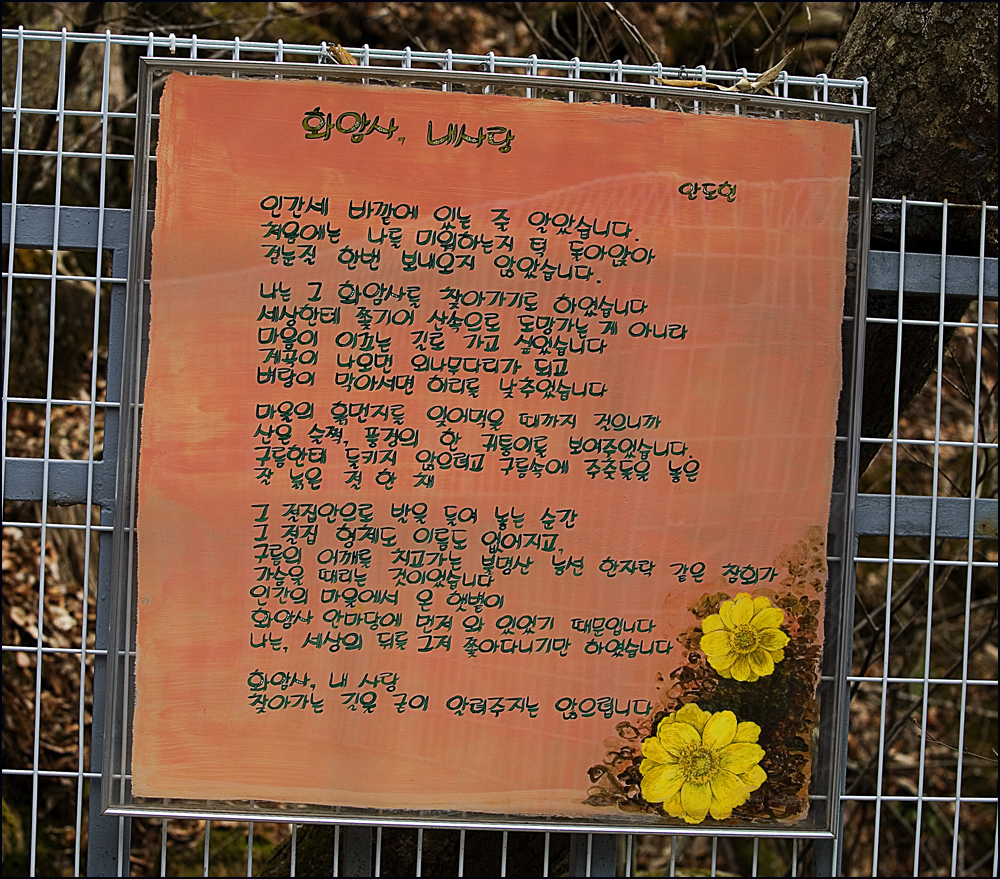 화암사, 내사랑
안도현
인간세 바깥에 있는 줄 알았습니다.
처음에는 나를 미워하는지 턱 돌아앉아
곁눈질 한번 보내오지 않았습니다.
나는 그 화암사를 찾아가기로 하였습니다
세상한테 쫓기어 산속으로 도망가는 게 아니라
마음이 이끄는 길로 가고 싶었습니다
계곡이 나오면 외나무다리가 되고
벼랑이 막아서면 허리를 낮추었습니다
마을의 흙먼지를 잊어먹을 때까지 걸으니까
산은 슬쩍, 풍경의 한 귀퉁이를 보여주었습니다.
구름한테 들키지 않으려고 구름속에 주춧돌을 놓은
잘 늙은 절 한 채
그 절집안으로 발을 들여 놓는 순간
그 절집 형체도 이름도 없어지고,
구름의 어깨를 치고가는 불명산 능선 한자락 같은 참회가
가슴을 때리는 것이었습니다
인간의 마을에서 온 햇볕이
화암사 안마당에 먼저 와 있었기 때문입니다
나는, 세상의 뒤를 그저 쫓아다니기만 하였습니다
화암사, 내 사랑
찾아가는 길을 굳이 알려주지는 않으렵니다